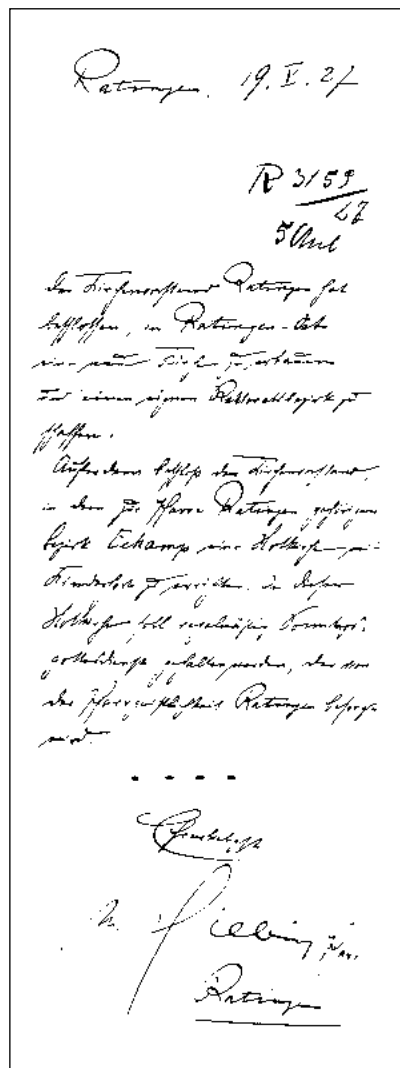 Ratingen, 19. V. 27
R 3159
27
5 Anl
Der Kirchenvorstand Ratingen hat
beschlossen, in Ratingen-Ost
eine neue Kirche zu erbauen
und einen eignen Rektoratsbezirk zu
schaffen.
Außerdem beschloß der Kirchenvorstand,
in dem zur Pfarre Ratingen gehörigen
Bezirk Eckamp eine Notkirche mit
Kinderhort zu errichten. In dieser
Notkirche soll regelmäßig Sonntags-
gottesdienst gehalten werden, der von
der Pfarrgeistlichkeit Ratingen besorgt
wird.
Ratingen